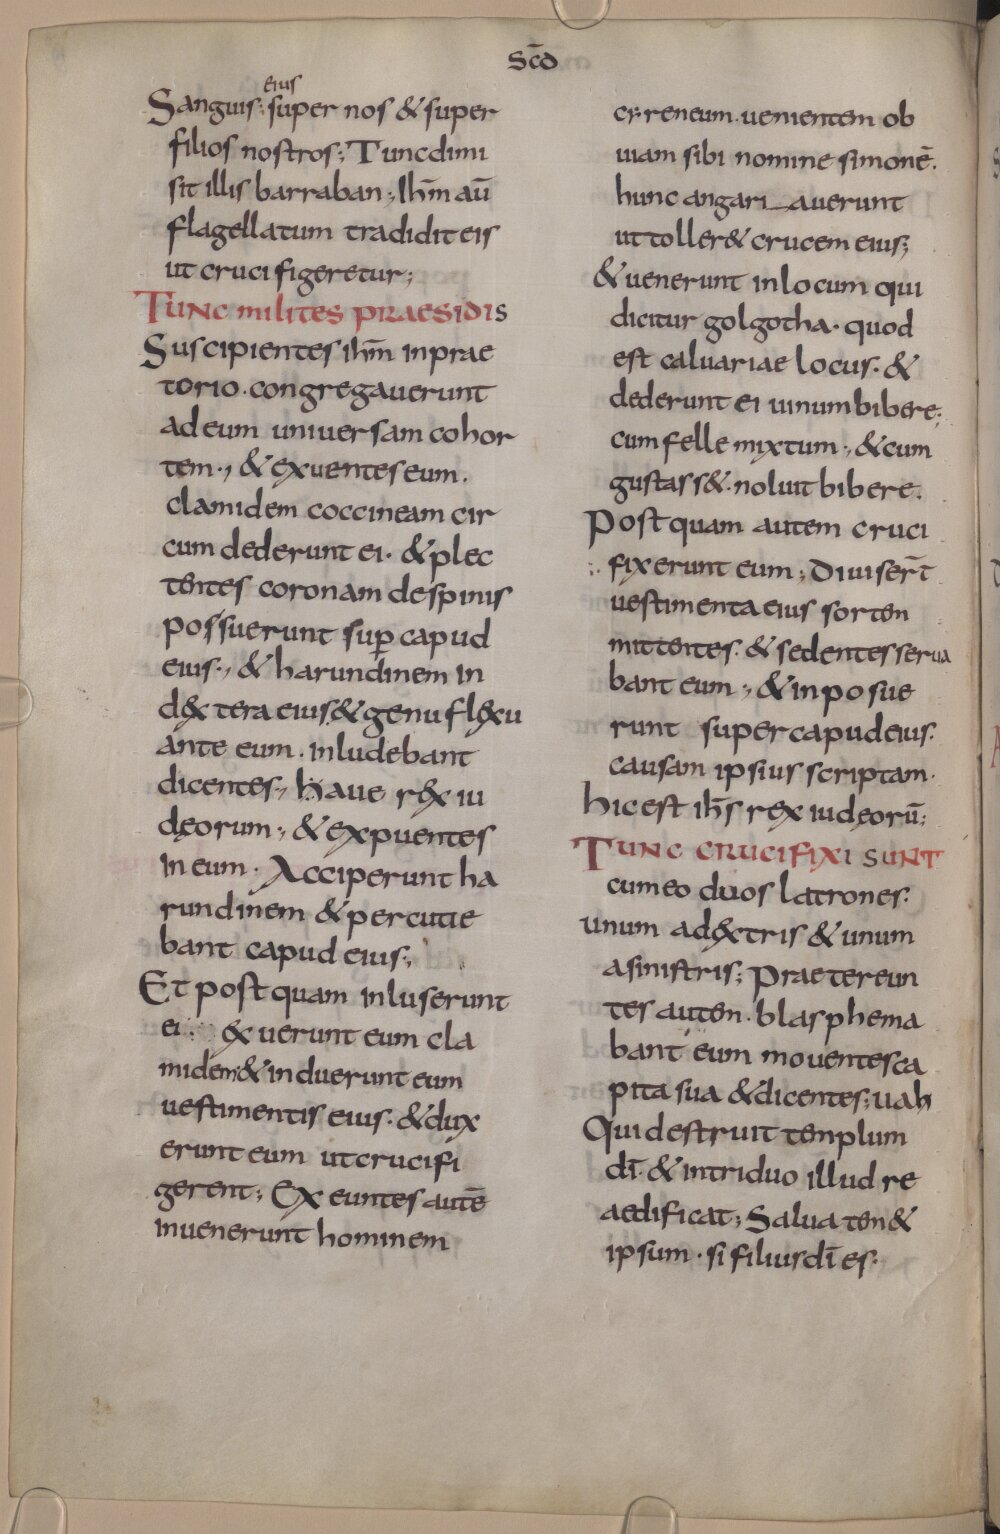 Scd̄
eius
Sanguis; super nos & super
filios nostros; Tunc dimi
sit illis barraban; Ihm̄ aū
flagellatum tradidit eis
ut cruci figeretur;
Tunc milites praesidis
Suscipientes ihm̄ in prae
torio. congregauerunt
ad eum uniuersam cohor
tem., & exuentes eum.
clamidem coccineam cir
cum dederunt ei. & plec
tentes coronam de spinis
possuerunt sup̄ capud
eius., & harundinem in
d&xtera eius, & genu fl&xu
ante eum. inludebant
dicentes., haue r&x iu
dęorum., & expuentes
in eum. Acciperunt ha
rundinem & percutie
bant capud eius;
Et post quam inluserunt
ei. &xuerunt eum cla
midem & induerunt eum
uestimentis eius. & dux
erunt eum ut crucifi
gerent; Exeuntes autē
inuenerunt hominem
cyreneum. uenientem ob
uiam sibi nomine simonē.
hunc angari_auerunt
ut toller& crucem eius;
& uenerunt in locum qui
dicitur golgotha. quod
est caluariae locus. &
dederunt ei uinum bibere;
cum felle mixtum., & cum
gustass&. noluit bibere.
Post quam autem cruci
fixerunt eum; Diuiser̄t
uestimenta eius sortem
mittentes. & sedentes serua
bant eum., & inposue
runt super capud eius.
causam ipsius scriptam.
hic est ih̄s rex iudęorū;
Tunc crucifixi sunt
cum eo duos latrones.
unum ad&xtris & unum
asinistris; Praetereun
tes autem. blasphema
bant eum mouentes ca
pita sua & dicentes; uah
Qui destruit templum
dī. & in triduo illud re
aedificat; Salua tem&
ipsum. si filius dī es.